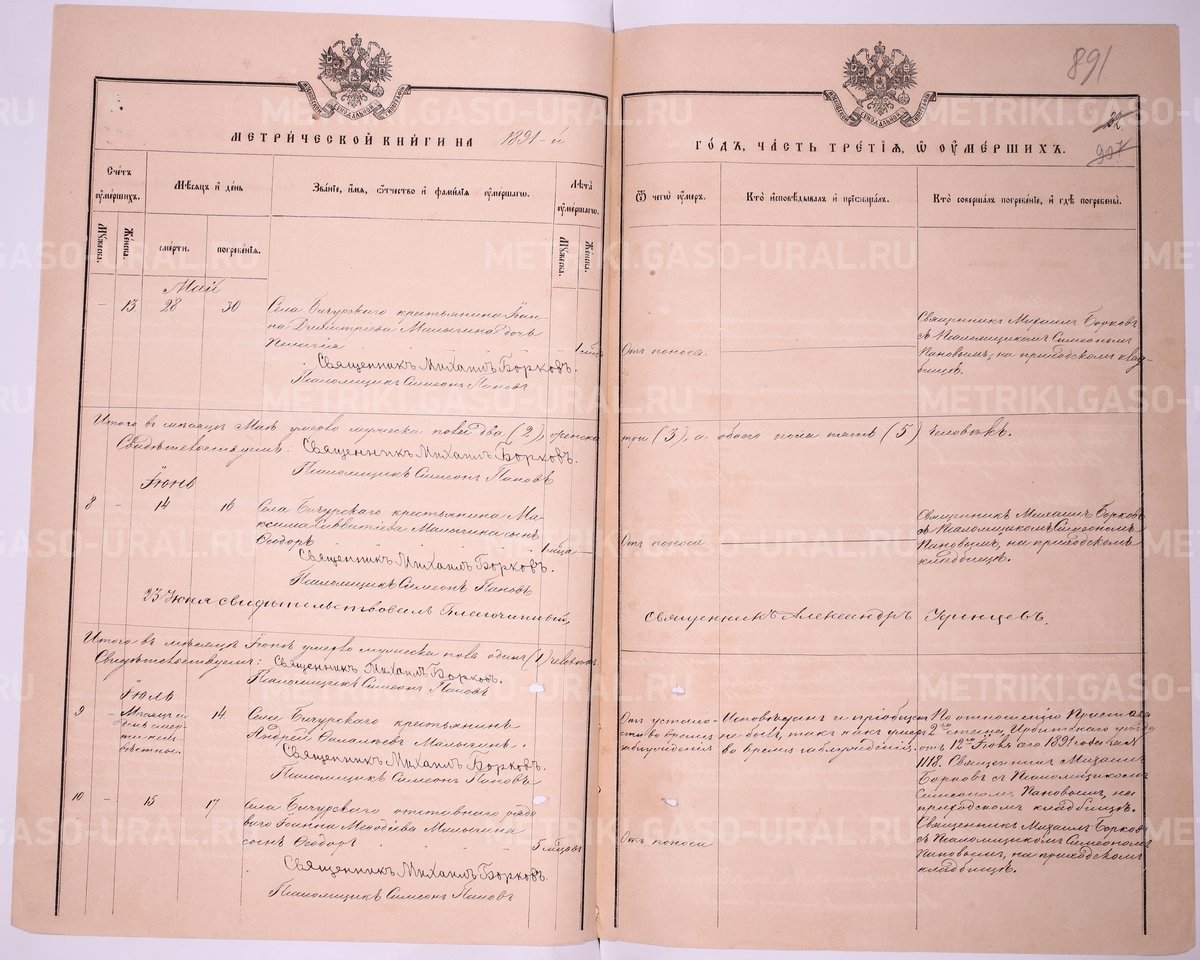 891
МЕТРИ́ЧЕСКОЙ КНИ́ГИ НА 1891-й
ГО́ДЪ, ЧА́СТЬ ТРЕ́ТІѦ, Ѡ҆ ОУМЕ́РШИХЪ.
907
Счетъ оумершихъ.
Мѣсѧцъ и день
Званіе, имѧ, ѻтчество и фамиліѧ оумершагѡ.
Лѣта оумершагѡ.
Ѿ чегѡ оумеръ.
Кто исповѣдывалъ и прїѡбщалъ.
Кто совершалъ погребеніе, и гдѣ погребены.
Мужеска.
Женска.
смерти.
погребенїѧ.
Мужеска.
Женска.
Май
- 13 28 30
Села Бичурскаго крестьянина Іоан-
на Димитріева Малыгина дочь
Пелагія
Священникъ Михаилъ Борковъ.
Псаломщикъ Симеонъ Пановъ
Отъ поноса.
Священникъ Михаилъ Борковъ
съ Псаломщикомъ Симеономъ
Пановымъ, на приходскомъ клад-
бищѣ.
Итого въ мѣсяцѣ Маѣ умерло мужеска пола два (2), женска три (3), а обоего пола пять (5) человѣкъ.
Свидѣтельствуемъ: Священникъ Михаилъ Борковъ.
Псаломщикъ Симеонъ Пановъ
Іюнь
8 - 14 16
Села Бичурскаго крестьянина Ма-
ксима Савватіева Малыгина сынъ
Ѳеодоръ
Священникъ Михаилъ Борковъ.
Псаломщикъ Симеонъ Пановъ
Отъ поноса.
Священникъ Михаилъ Борковъ
съ Псаломщикомъ Симеономъ
Пановымъ, на приходскомъ
кладбищѣ.
23 Іюня свидѣтельствовалъ Благочинный, Священникъ Александръ
Итого въ мѣсяцѣ Іюнѣ умерло мужеска пола одинъ (1) человѣкъ
Свидѣтельствуемъ: Священникъ Михаилъ Борковъ.
Псаломщикъ Симеонъ Пановъ
Іюль
9 - Мѣсяцъ и день смерти неизвѣстное. 14
Села Бичурскаго крестьянинъ
Андрей Малыгинъ.
Священникъ Михаилъ Борковъ.
Псаломщикъ Симеонъ Пановъ
Отъ устало-
сти во время
заблужденія
Исповѣданъ и пріобщенъ
не былъ, такъ какъ умеръ
во время заблужденія.
По отношенію Пристава
2го стана, Ирбитскаго уѣзда
отъ 12го Іюля сего 1891 года за №
1118. Священникъ Михаилъ
Борковъ съ Псаломщикомъ
Симеономъ Пановымъ, на
приходскомъ кладбищѣ.
10 - 15 17
Села Бичурскаго отставнаго рядо-
ваго Іоанна Меѳодіева Малыгина
сынъ Ѳеодоръ
Священникъ Михаилъ Борковъ.
Псаломщикъ Симеонъ Пановъ
5 мѣсяцовъ
Отъ поноса
Священникъ Михаилъ Борковъ
съ Псаломщикомъ Симеономъ
Пановымъ, на приходскомъ
кладбищѣ.
METRIKI.GASO-URAL.RU